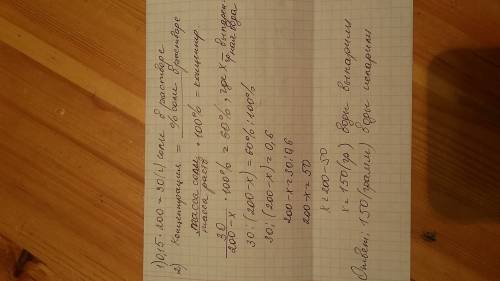 1) 0,15 · 200 = 30 (г) соли в растворе
2) концентрация = % соли в растворе
масса соли / масса раств · 100% = концентр.
30 / 200 - x · 100% = 60%, где x - выпарен-
ная вода
30 : (200 - x) = 60% : 100%
30 : (200 - x) = 0,6
200 - x = 30 : 0,6
200 - x = 50
x = 200 - 50
x = 150 (гр) воды выпарили
Ответ: 150 (грамм) воды испарили